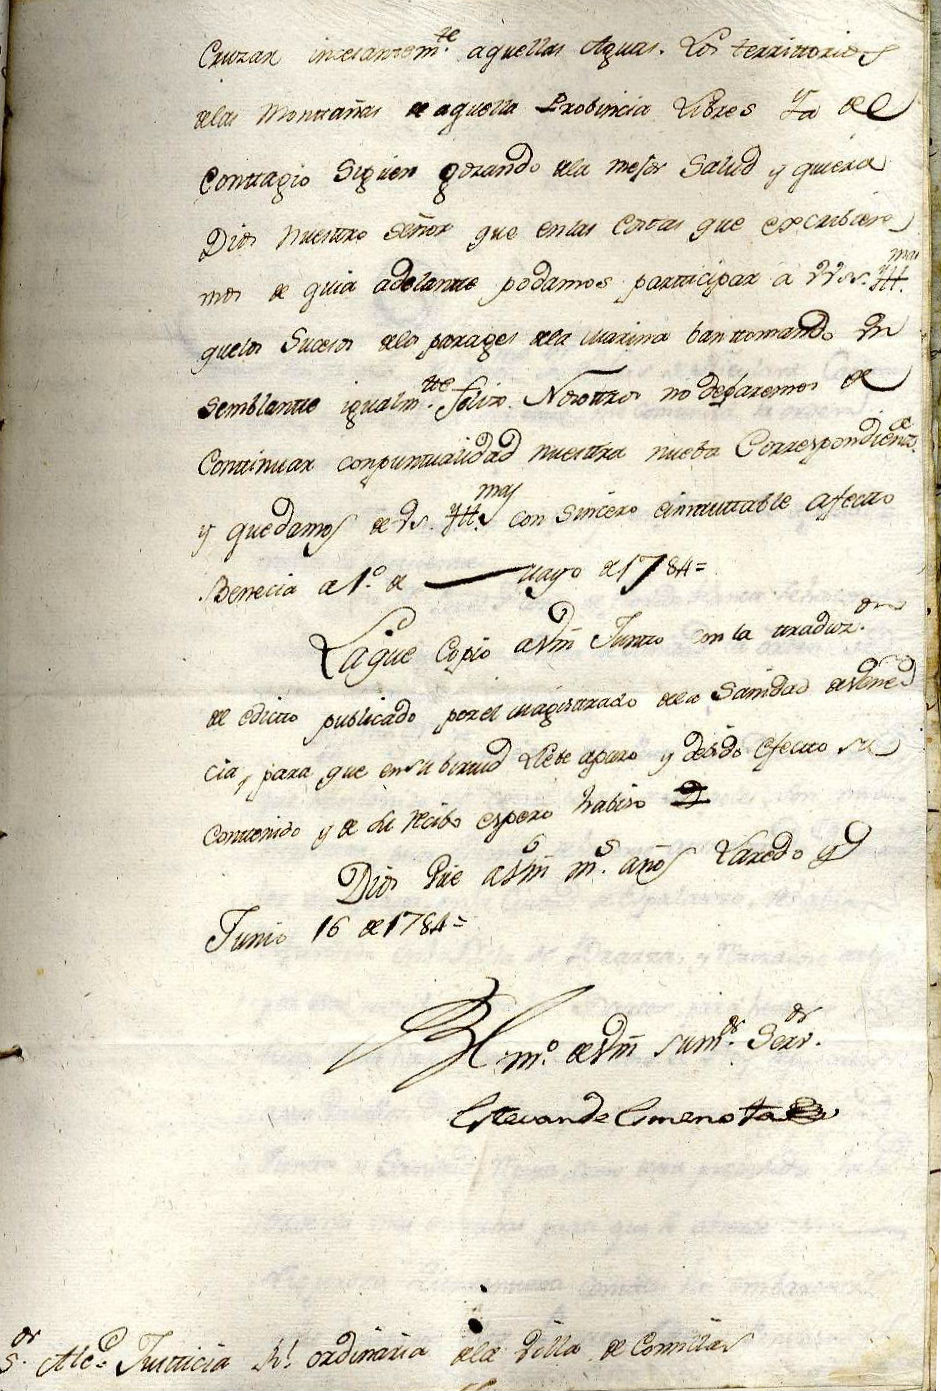 Cruzar incesantem.te aquellas Aguas. Los territtorios
delas Monttañas de aquella Probincia Libres Ya del
Conttagio Siguen gozando dela mejor Salud y quiera
Dios Nuesttro Señor que enlas Cartas que excribiere
mos de quia adelantte podamos partticipar a VV.SS. Ill.mas
quelos Sucesos delos parages dela Marina ban ttomando Un
Semblantte igualm.tte féliz. Nosottros no dejaremos de
Conttinuar conpunttualidad nuesttra nueba Correspondienca.
y quedamos de Vs. Ill.mas con Sincero e inmuttable afectto
Benecia a 1.º de Mayo de 1784=
La que Copio a Vm Juntto con la ttraduz.on
de edictto publicado por el Magisttrado dela Sanidad de Vene
cia, para que en su birttud Llebe a puro y debido efectto su
Conttenido y de su recibo espero habiso D
Dios Gûe a Vm m.s años Laredo y
Junio 16 de 1784=
BL m.º de Vm su m.or Serv.or
Estevan de Esmenota
S.or Alc.e Justticia R.l ordinaria dela Villa de Comillas